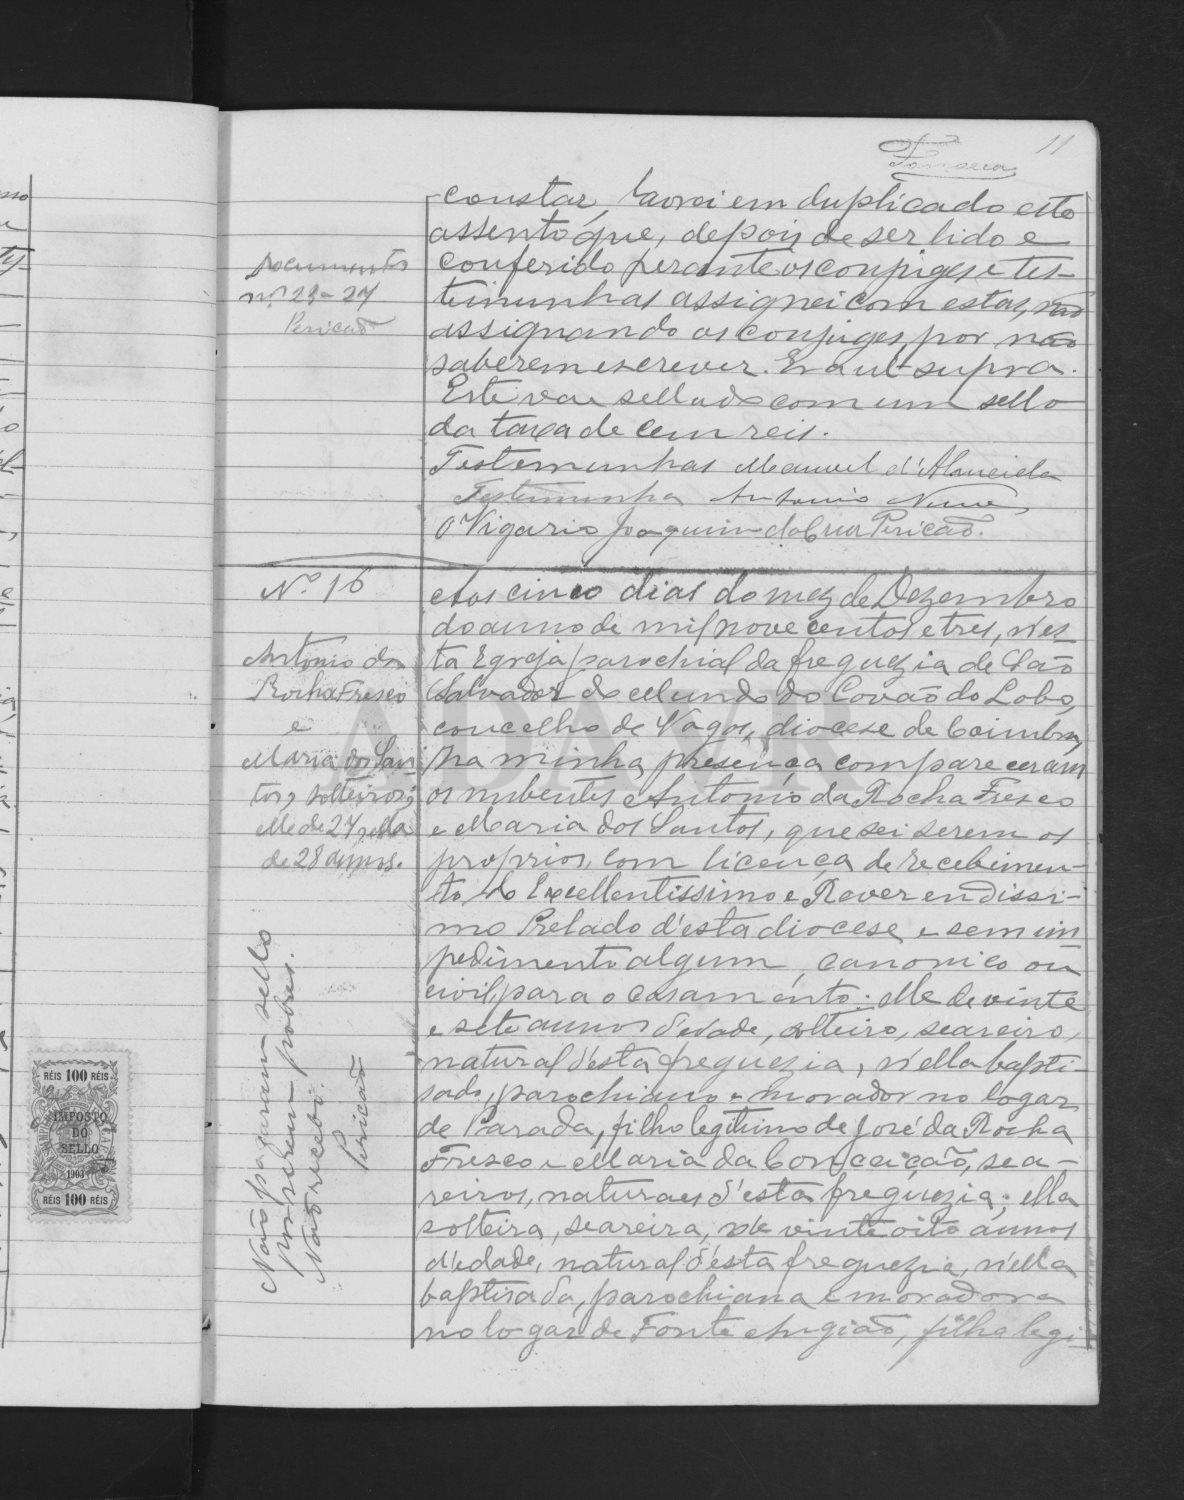 11
Fonseca
constar, lavrei em duplicado este
assento que, depois de ser lido e
conferido perante os conjuges e tes-
timunhas assignei com estas, não
assignando os conjuges, por não
saberem escrever. Era ut supra.
Este vae sellado com um sello
da taxa de cem reis.
Testemunhas Manuel d'Almeida
Testimunha Antonio Nunes
O Vigario Joaquim da Cruz Pericão.
Documentos
nos 23-24
Pericão
Nº 16
Antonio da
Rocha Fresco
e
Maria dos San-
tos, solteiros;
elle de 27, ella
de 28 annos.
Não pagaram sello
por serem pobres.
Não recebi.
Pericão
Aos cinco dias do mez de Dezembro
do anno de mil nove centos e tres, n'es-
ta Egreja parochial da freguezia de São
Salvador do Mundo do Covão do Lobo,
concelho de Vagos, diocese de Coimbra,
na minha presença compareceram
os nubentes Antonio da Rocha Fresco
e Maria dos Santos, que sei serem os
proprios, com licença de recebimen-
to do Excellentissimo e Reverendissi-
mo Prelado d'esta diocese e sem im
pedimento algum, canonico ou
civil, para o casamento: elle de vinte
e sete annos d'edade, solteiro, seareiro,
natural d'esta freguezia, n'ella bapti-
sado, parochiano e morador no logar
de Parada, filho legitimo de José da Rocha
Fresco e Maria da Conceição, sea-
reiros, naturaes d'esta freguezia; ella
solteira, seareira, de vinte oito annos
d'edade, natural d'esta freguezia, n'ella
baptisada, parochiana e moradora
no logar de Fonte Angião, filha legi-
RÉIS 100 RÉIS
IMPOSTO
DO
SELLO
1903
RÉIS 100 RÉIS
ADAVR